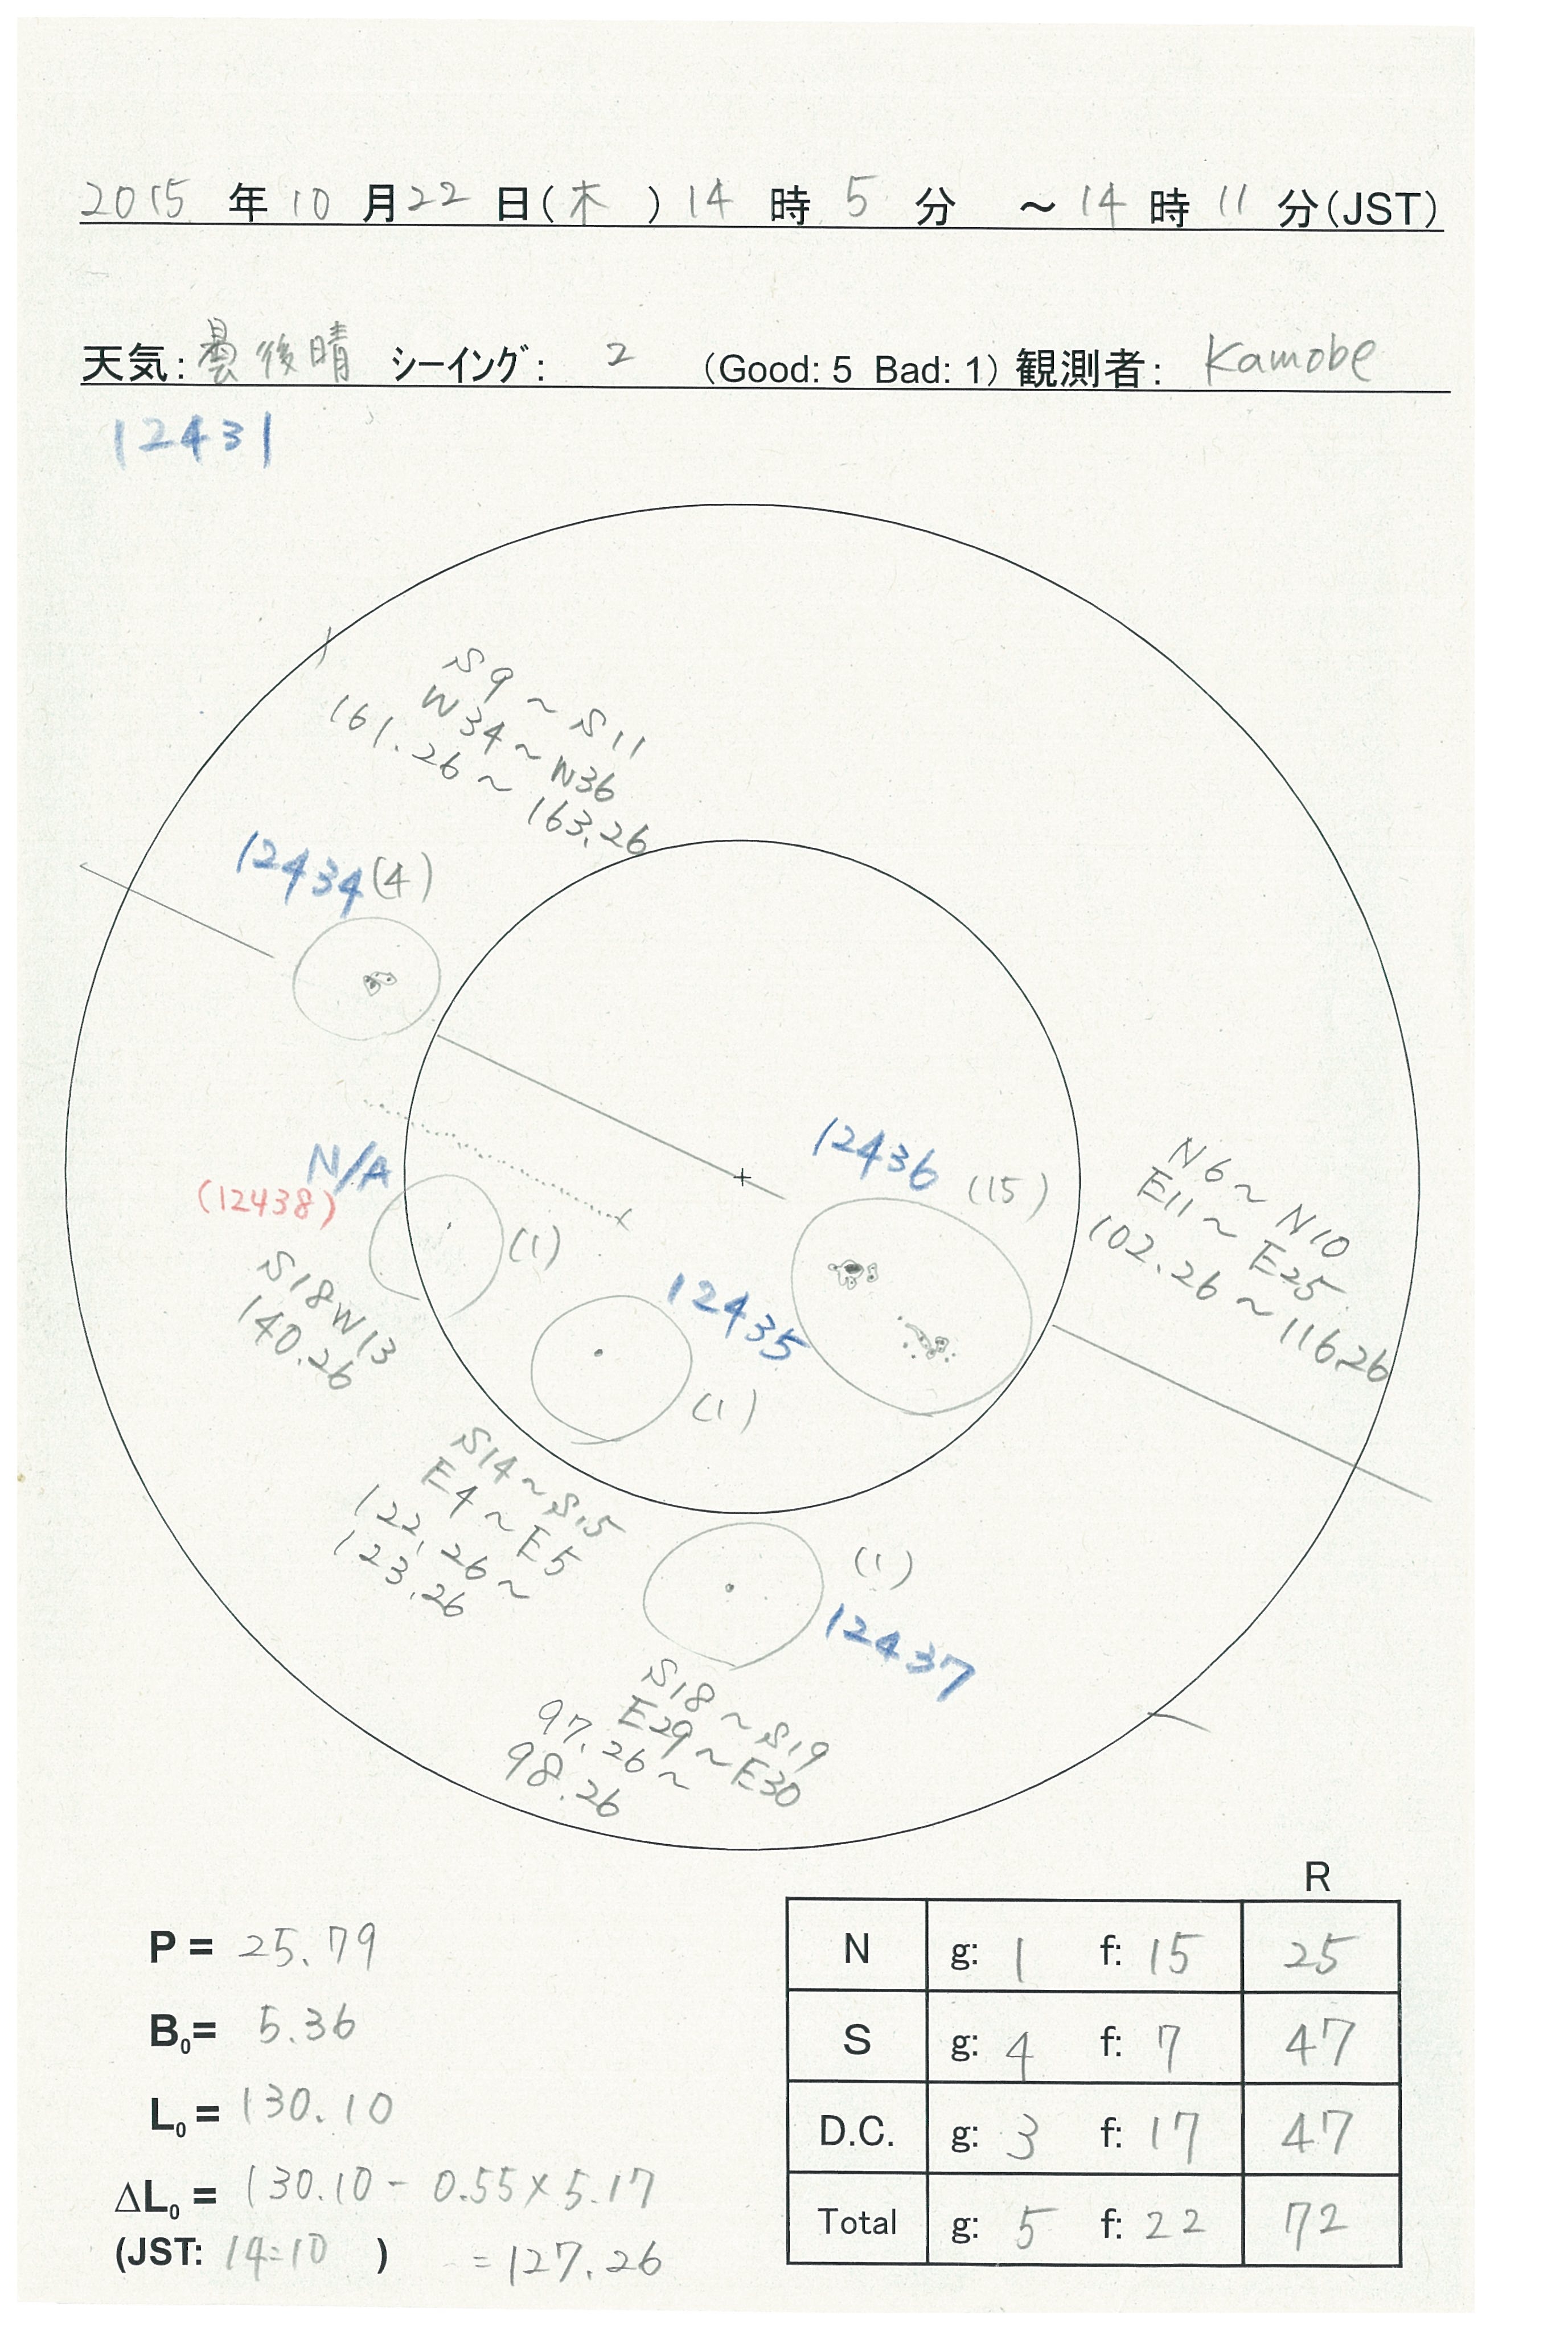 2015 年 10 月 22 日(木 ) 14 時 5 分 ～ 14 時 11 分(JST)
天気: 曇後晴 シーイング: 2 (Good: 5 Bad: 1) 観測者: Kamobe
12431
S9～S11
W34～W36
161.26～163.26
12434 (4)
12436 (15)
N6～N10
E11～E25
102.26～116.26
N/A
(12438)
(1)
S18W13
140.26
12435
(1)
S14～S15
E4～E5
122.26～
123.26
(1)
12437
S18～S19
E29～E30
97.26～
98.26
R
P = 25.79
B0= 5.36
L0= 130.10
ΔL0= 130.10 - 0.55×5.17
(JST: 14:10 ) =127.26
N g: 1 f: 15 25
S g: 4 f: 7 47
D.C. g: 3 f: 17 47
Total g: 5 f: 22 72